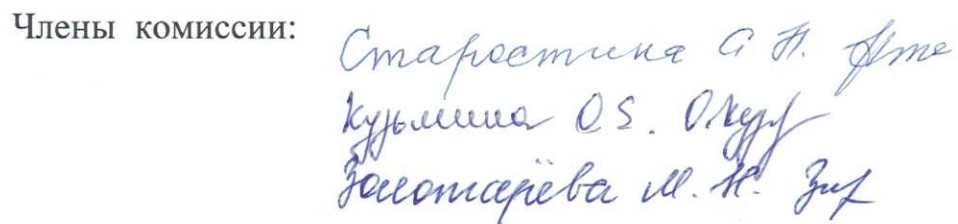 Члены комиссии:
Старостина С Н.
Кузьмина О.Б.
Золотарёва М. Н.